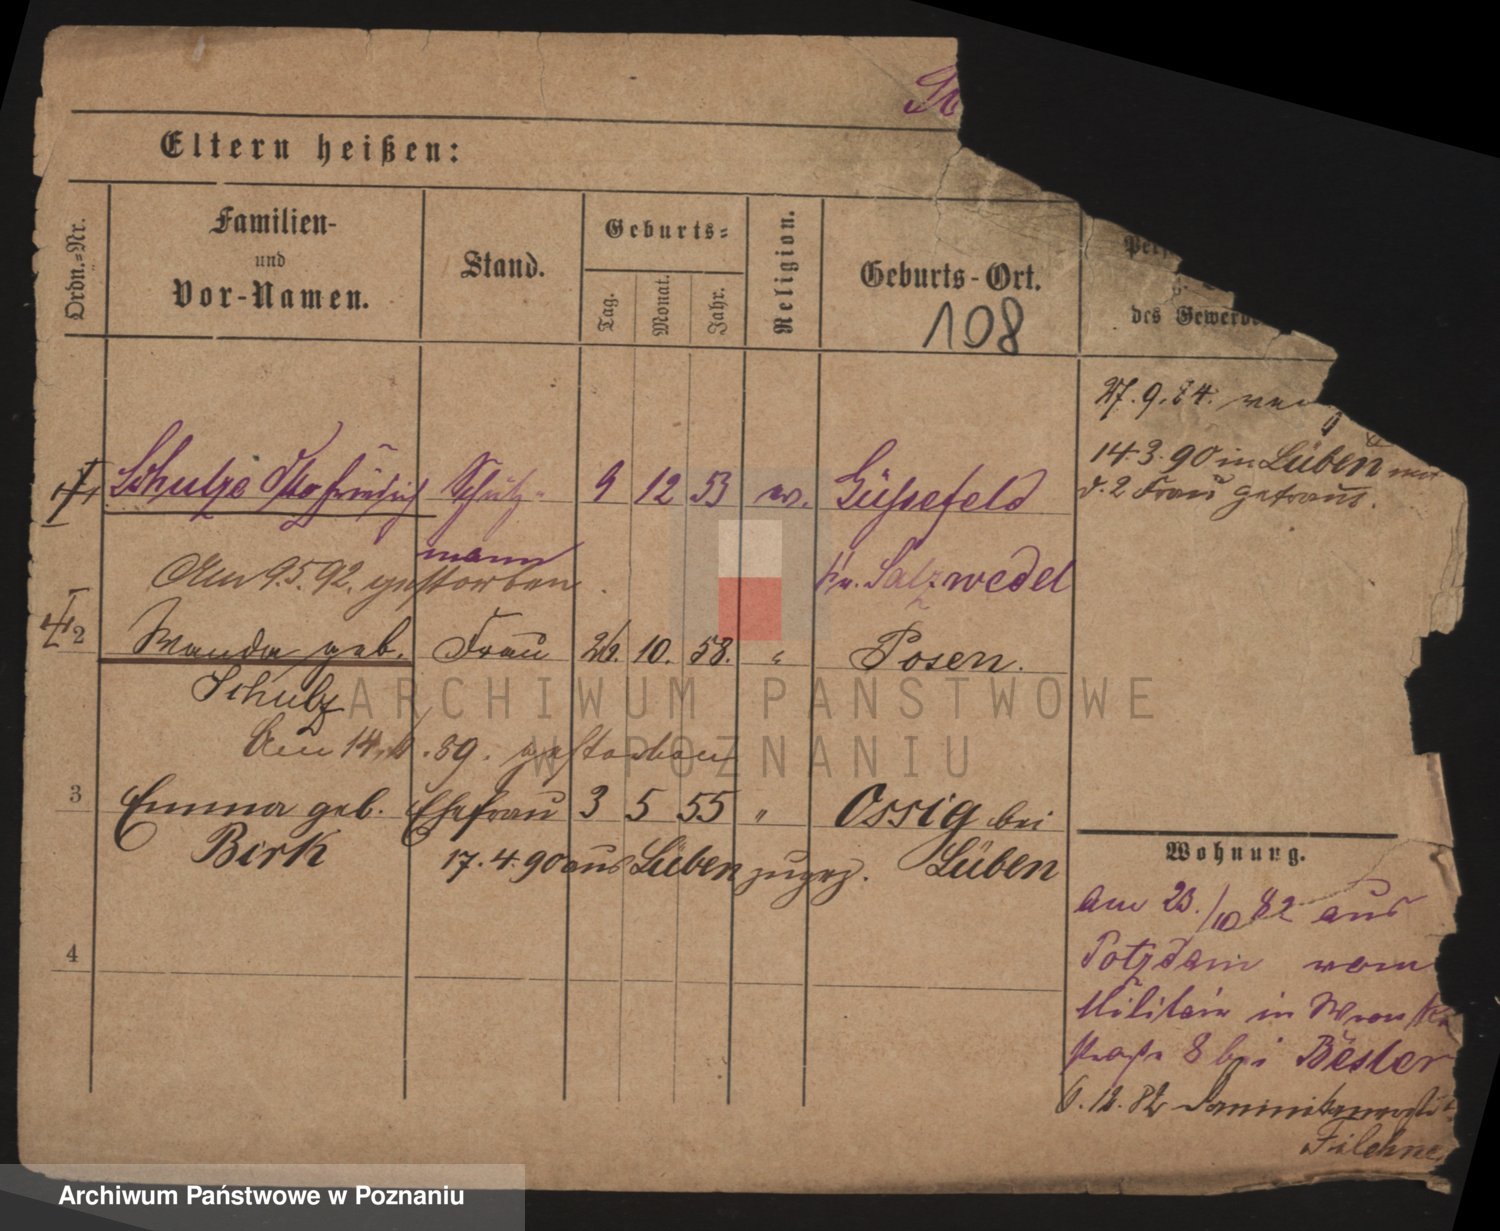 Eltern heißen:
Ordn.-Nr.
Familien-
und
Vor-Namen.
Stand.
Geburts-
Tag.
Monat.
Jahr.
Religion.
Geburts-Ort.
des Gewerbe
108
27.9.84.
14 3. 90 in Lüben
d. 2 Frau getraut.
Schulze Otto Friedrich Schutz- 9 12 53 ev. Güssefeld
mann Kr. Salzwedel
Am 9.5.92. gestorben.
2 Wanda geb. Frau 26. 10. 58. " Posen.
Schulz
Am 14. . 89. gestorben
3 Emma geb. Ehefrau 3 5 55 " Ossig bei
Birk 17.4.90 aus Lüben zugez. Lüben
4
Wohnung.
am 23./10 82 aus
Potsdam vom
Militair in Wronker
straße 8 bei Bester
6.12.82
Filehne
ARCHIWUM PAŃSTWOWE
W POZNANIU
Archiwum Państwowe w Poznaniu